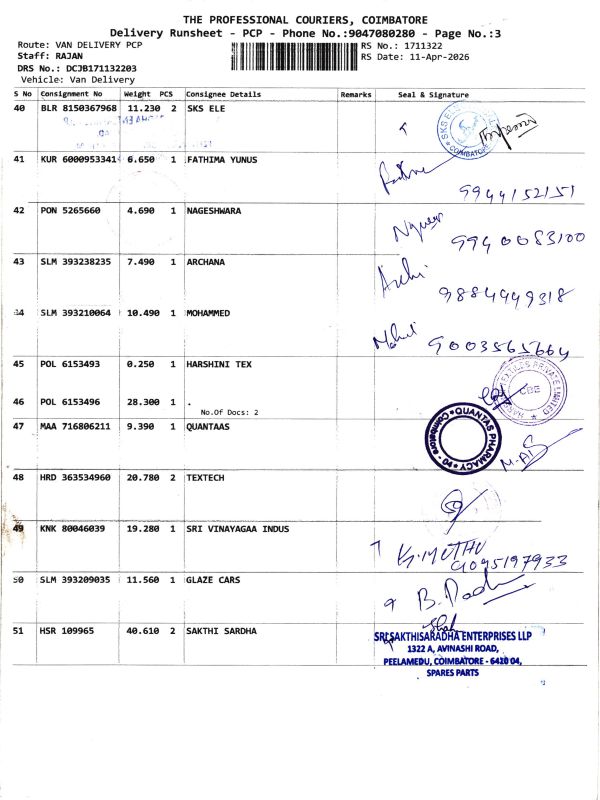 THE PROFESSIONAL COURIERS, COIMBATORE
Delivery Runsheet - PCP - Phone No.:9047080280 - Page No.:3
Route: VAN DELIVERY PCP
RS No.: 1711322
Staff: RAJAN
RS Date: 11-Apr-2026
DRS No.: DCJB171132203
Vehicle: Van Delivery
S No Consignment No Weight PCS Consignee Details Remarks Seal & Signature
40 BLR 8150367968 11.230 2 SKS ELE
COIMBATORE
41 KUR 6000953341 6.650 1 FATHIMA YUNUS
9944152151
42 PON 5265660 4.690 1 NAGESHWARA
9940083100
43 SLM 393238235 7.490 1 ARCHANA
9884949318
44 SLM 393210064 10.490 1 MOHAMMED
9003565664
45 POL 6153493 0.250 1 HARSHINI TEX
CBE
46 POL 6153496 28.300 1 .
No.Of Docs: 2
47 MAA 716806211 9.390 1 QUANTAAS
QUANTAS PHARMACY Coimbatore - 04
48 HRD 363534960 20.780 2 TEXTECH
49 KNK 80046039 19.280 1 SRI VINAYAGAA INDUS
K.MUTHU
9095197933
50 SLM 393209035 11.560 1 GLAZE CARS
51 HSR 109965 40.610 2 SAKTHI SARDHA
SRI SAKTHISARADHA ENTERPRISES LLP
1322 A, AVINASHI ROAD,
PEELAMEDU, COIMBATORE - 6410 04,
SPARES PARTS